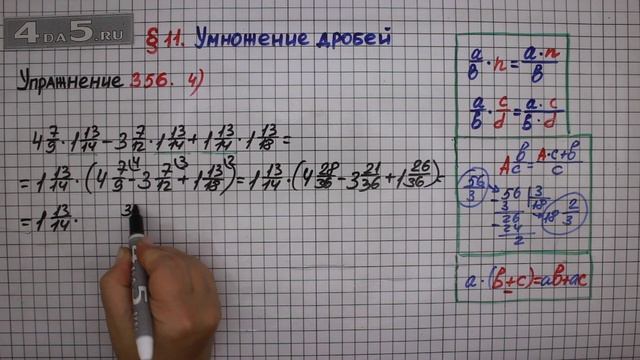 4DA5.RU
§ 11. Умножение дробей
Упражнение 356. 4)
4 7/9 · 1 13/14 - 3 7/12 · 1 13/14 + 1 13/14 · 1 13/18 =
= 1 13/14 · (4 7/9 - 3 7/12 + 1 13/18) = 1 13/14 · (4 28/36 - 3 21/36 + 1 26/36) =
= 1 13/14 · 3
a/b · n = a·n/b
a/b · c/d = a·c/b·d
A b/c = A·c+b/c
56/3
56 3
3 18
26 18 2/3
24
2
a·(b+c)=ab+ac